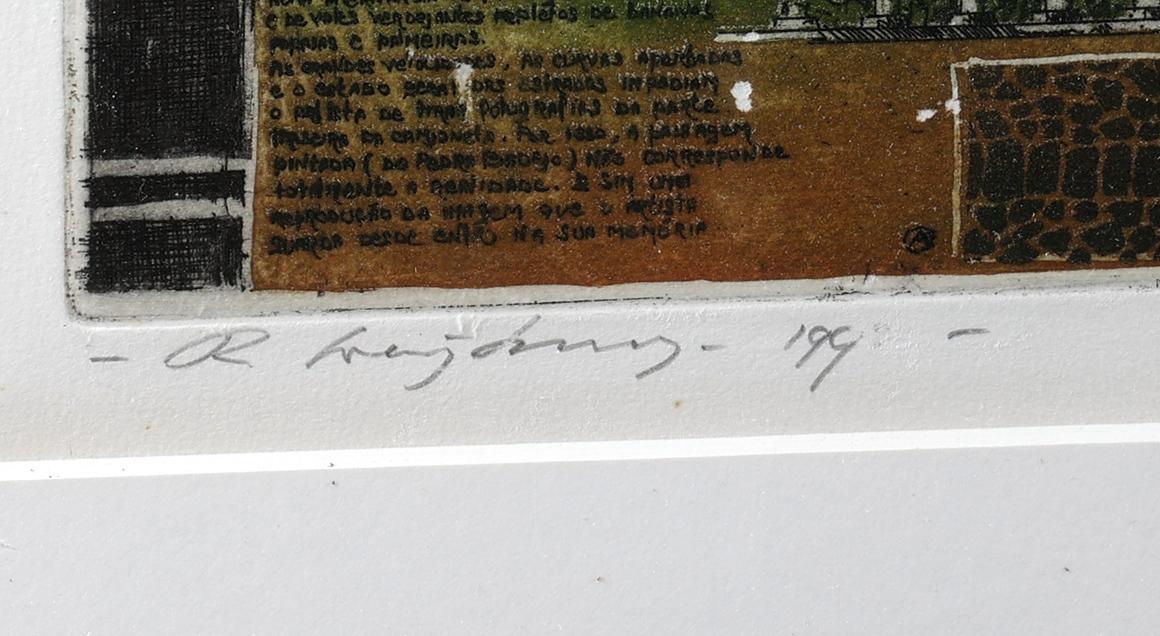 e de vales verdejantes repletos de bananas
e palmeiras.
As grandes velocidades, as curvas apertadas
e o estado geral das estradas impediam
o artista de tirar fotografias da parte
traseira da camioneta. Por isso, a paisagem
pintada (de Pedra Badejo) não corresponde
totalmente a realidade. E sim uma
reprodução da imagem que o artista
guarda desde então na sua memória
R
199